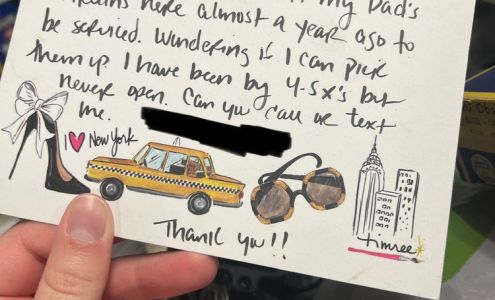 my Dad's
here almost a year ago to
be serviced. Wondering if I can pick
them up. I have been by 4-5x's but
never open. Can you call or text
me.
I ♥ New York
Thank you!!